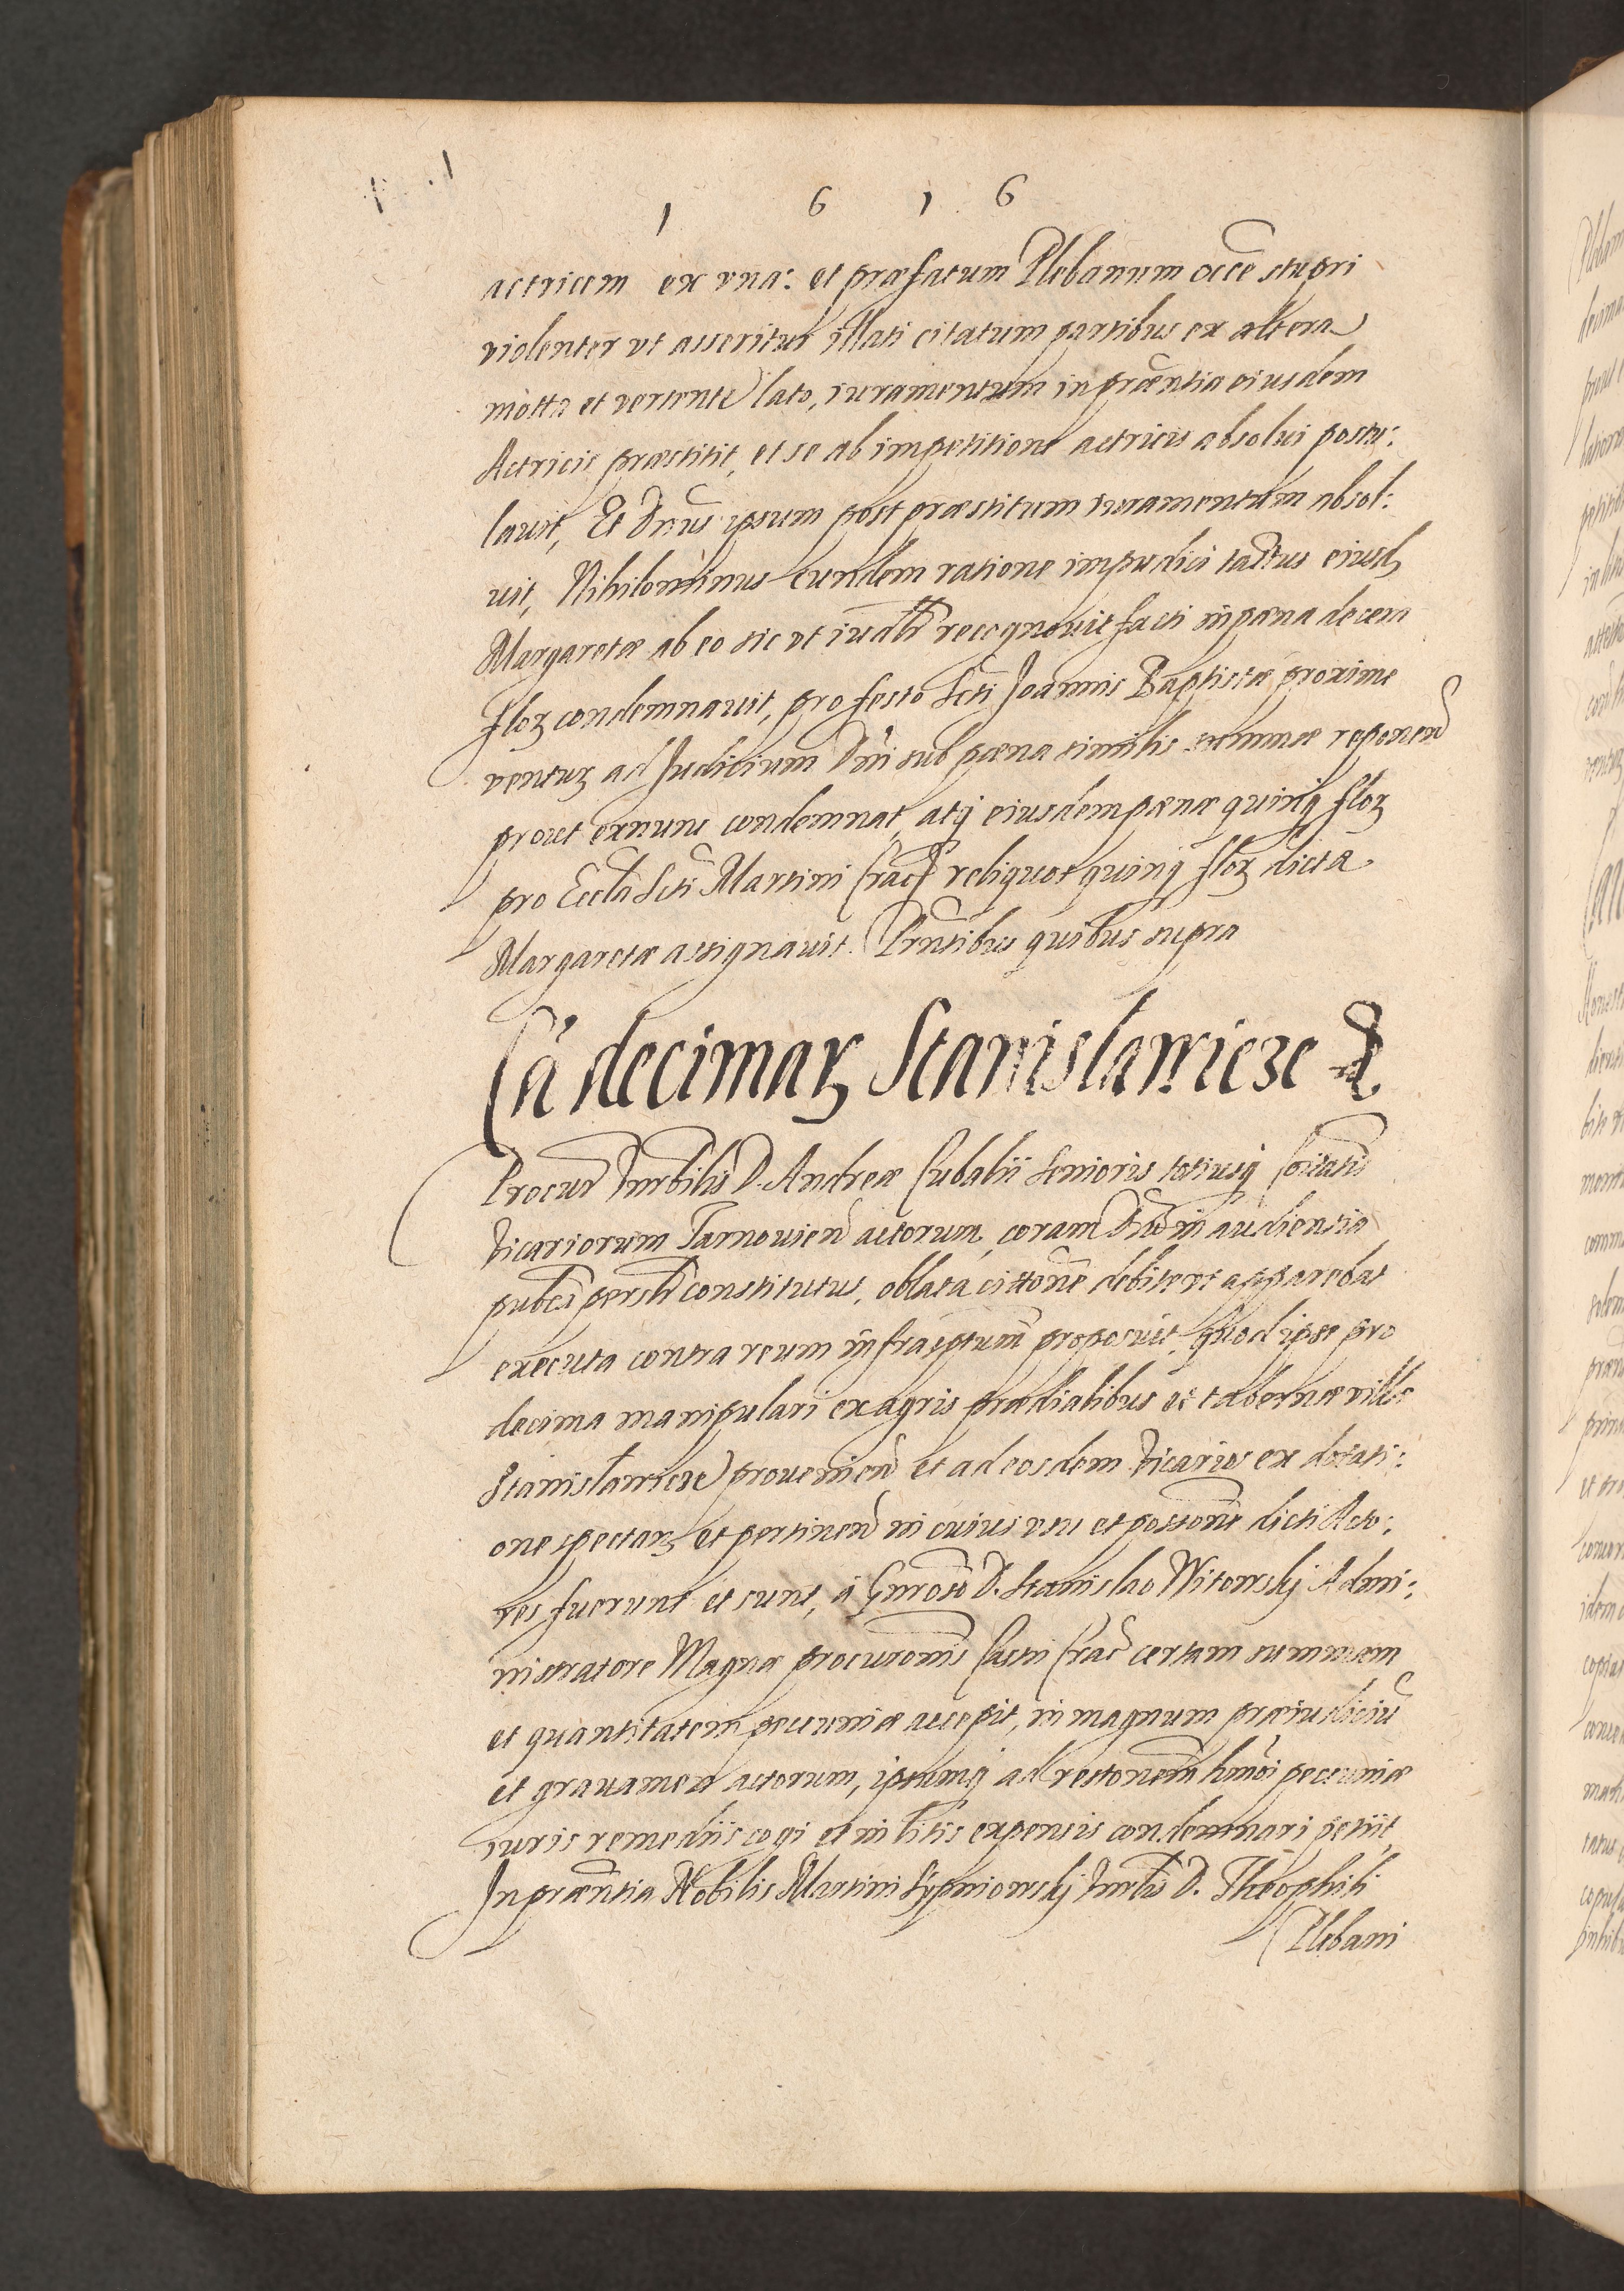 1 6 1 6
actricem ex vna: et præfatum Plebanum occe stupri
violenter vt asseritur illati citatum partibus ex altera
motta et vertente lato, iuramentum in præntia eiusdem
Actricis præstitit, et se ab impetitione actricis absolui postu:
lauit, Et Dnus ipsum post præstitum iuramentum absol:
uit, Nihilominus eundem ratione impudici tactus eiusd
Margaretæ ab eo sic vt iudtr recognouit facti in pæna decem
floz condemnauit, pro festo Scti Joannis Baptistæ proxime
ventuz ad Judicium Dni sub pæna similis summæ reponend
prout exnunc condemnat, atq eiusdem pænæ quinq floz
pro Eccla Scti Martini Crac reliquos quinq floz dicta
Margaretæ assignauit. Prntibus quibus supra
Ca decimaz Stanislawicze
Procur Hnrbilis D. Andreæ Cubalii Senioris totiusq Coitatis
Vicariorum Tarnouien actorum, coram Dno in audientia
pubca persltr constitutus, oblata cittone debite vt apparebat
executa contra reum infrascptum proposuit, quod ipse pro
decima manipulari ex agris prædialibus et tabernæ villæ
Stanislawicze prouenien et ad eosdem Vicarios ex dotati:
one spectanz et pertinen in cuius vsu et possone dicti Acto:
res fuerunt et sunt, à Gnroso D. Stanislao Witowskj Admi:
nistratore Magnæ procuronis Castri Crac certam summam
et quantitatem pecuniæ accepit, in magnum præiudiciu
et grauamen actorum, ipsumq ad restonem hmoi pecuniæ
iuris remediis cogi et in litis expensis condemnari petiit,
In præntia Nobilis Martini Sypniowskj Hnrblis D. Theophili
Plebani